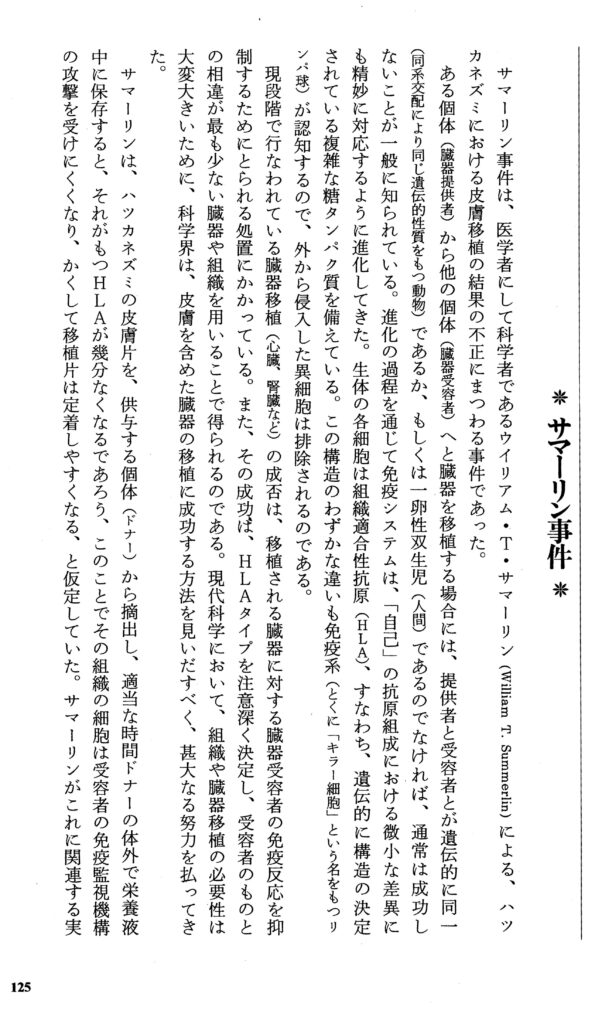 ＊ サマーリン事件 ＊
サマーリン事件は、医学者にして科学者であるウイリアム・T・サマーリン (William T. Summerlin) による、ハツ
カネズミにおける皮膚移植の結果の不正にまつわる事件であった。
ある個体（臓器提供者）から他の個体（臓器受容者）へと臓器を移植する場合には、提供者と受容者とが遺伝的に同一
（同系交配により同じ遺伝的性質をもつ動物）であるか、もしくは一卵性双生児（人間）であるのでなければ、通常は成功し
ないことが一般に知られている。進化の過程を通じて免疫システムは、「自己」の抗原組成における微小な差異に
も精妙に対応するように進化してきた。生体の各細胞は組織適合性抗原（HLA）、すなわち、遺伝的に構造の決定
されている複雑な糖タンパク質を備えている。この構造のわずかな違いも免疫系（とくに「キラー細胞」という名をもつリ
ンパ球）が認知するので、外から侵入した異細胞は排除されるのである。
現段階で行なわれている臓器移植（心臓、腎臓など）の成否は、移植される臓器に対する臓器受容者の免疫反応を抑
制するためにとられる処置にかかっている。また、その成功は、HLAタイプを注意深く決定し、受容者のものと
の相違が最も少ない臓器や組織を用いることで得られるのである。現代科学において、組織や臓器移植の必要性は
大変大きいために、科学界は、皮膚を含めた臓器の移植に成功する方法を見いだすべく、甚大なる努力を払ってき
た。
サマーリンは、ハツカネズミの皮膚片を、供与する個体（ドナー）から摘出し、適当な時間ドナーの体外で栄養液
中に保存すると、それがもつHLAが幾分なくなるであろう、このことでその組織の細胞は受容者の免疫監視機構
の攻撃を受けにくくなり、かくして移植片は定着しやすくなる、と仮定していた。サマーリンがこれに関連する実
125